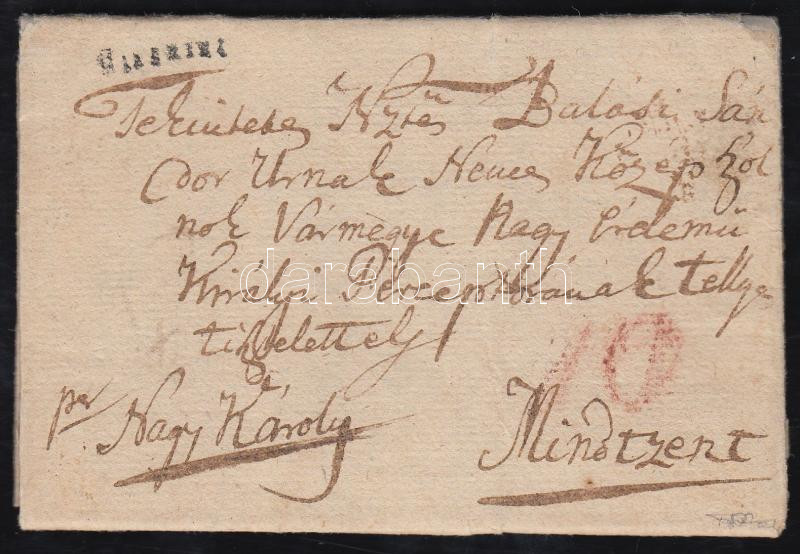 Tekintetes Nztes Balási Sán
dor Urnak Nemes Közép Szol
nok Vármegye Nagy Érdemü
Királyi Perceptorának tellyes
tisztelettel
per
Nagy Károly
Mindtzent
10
darabanth